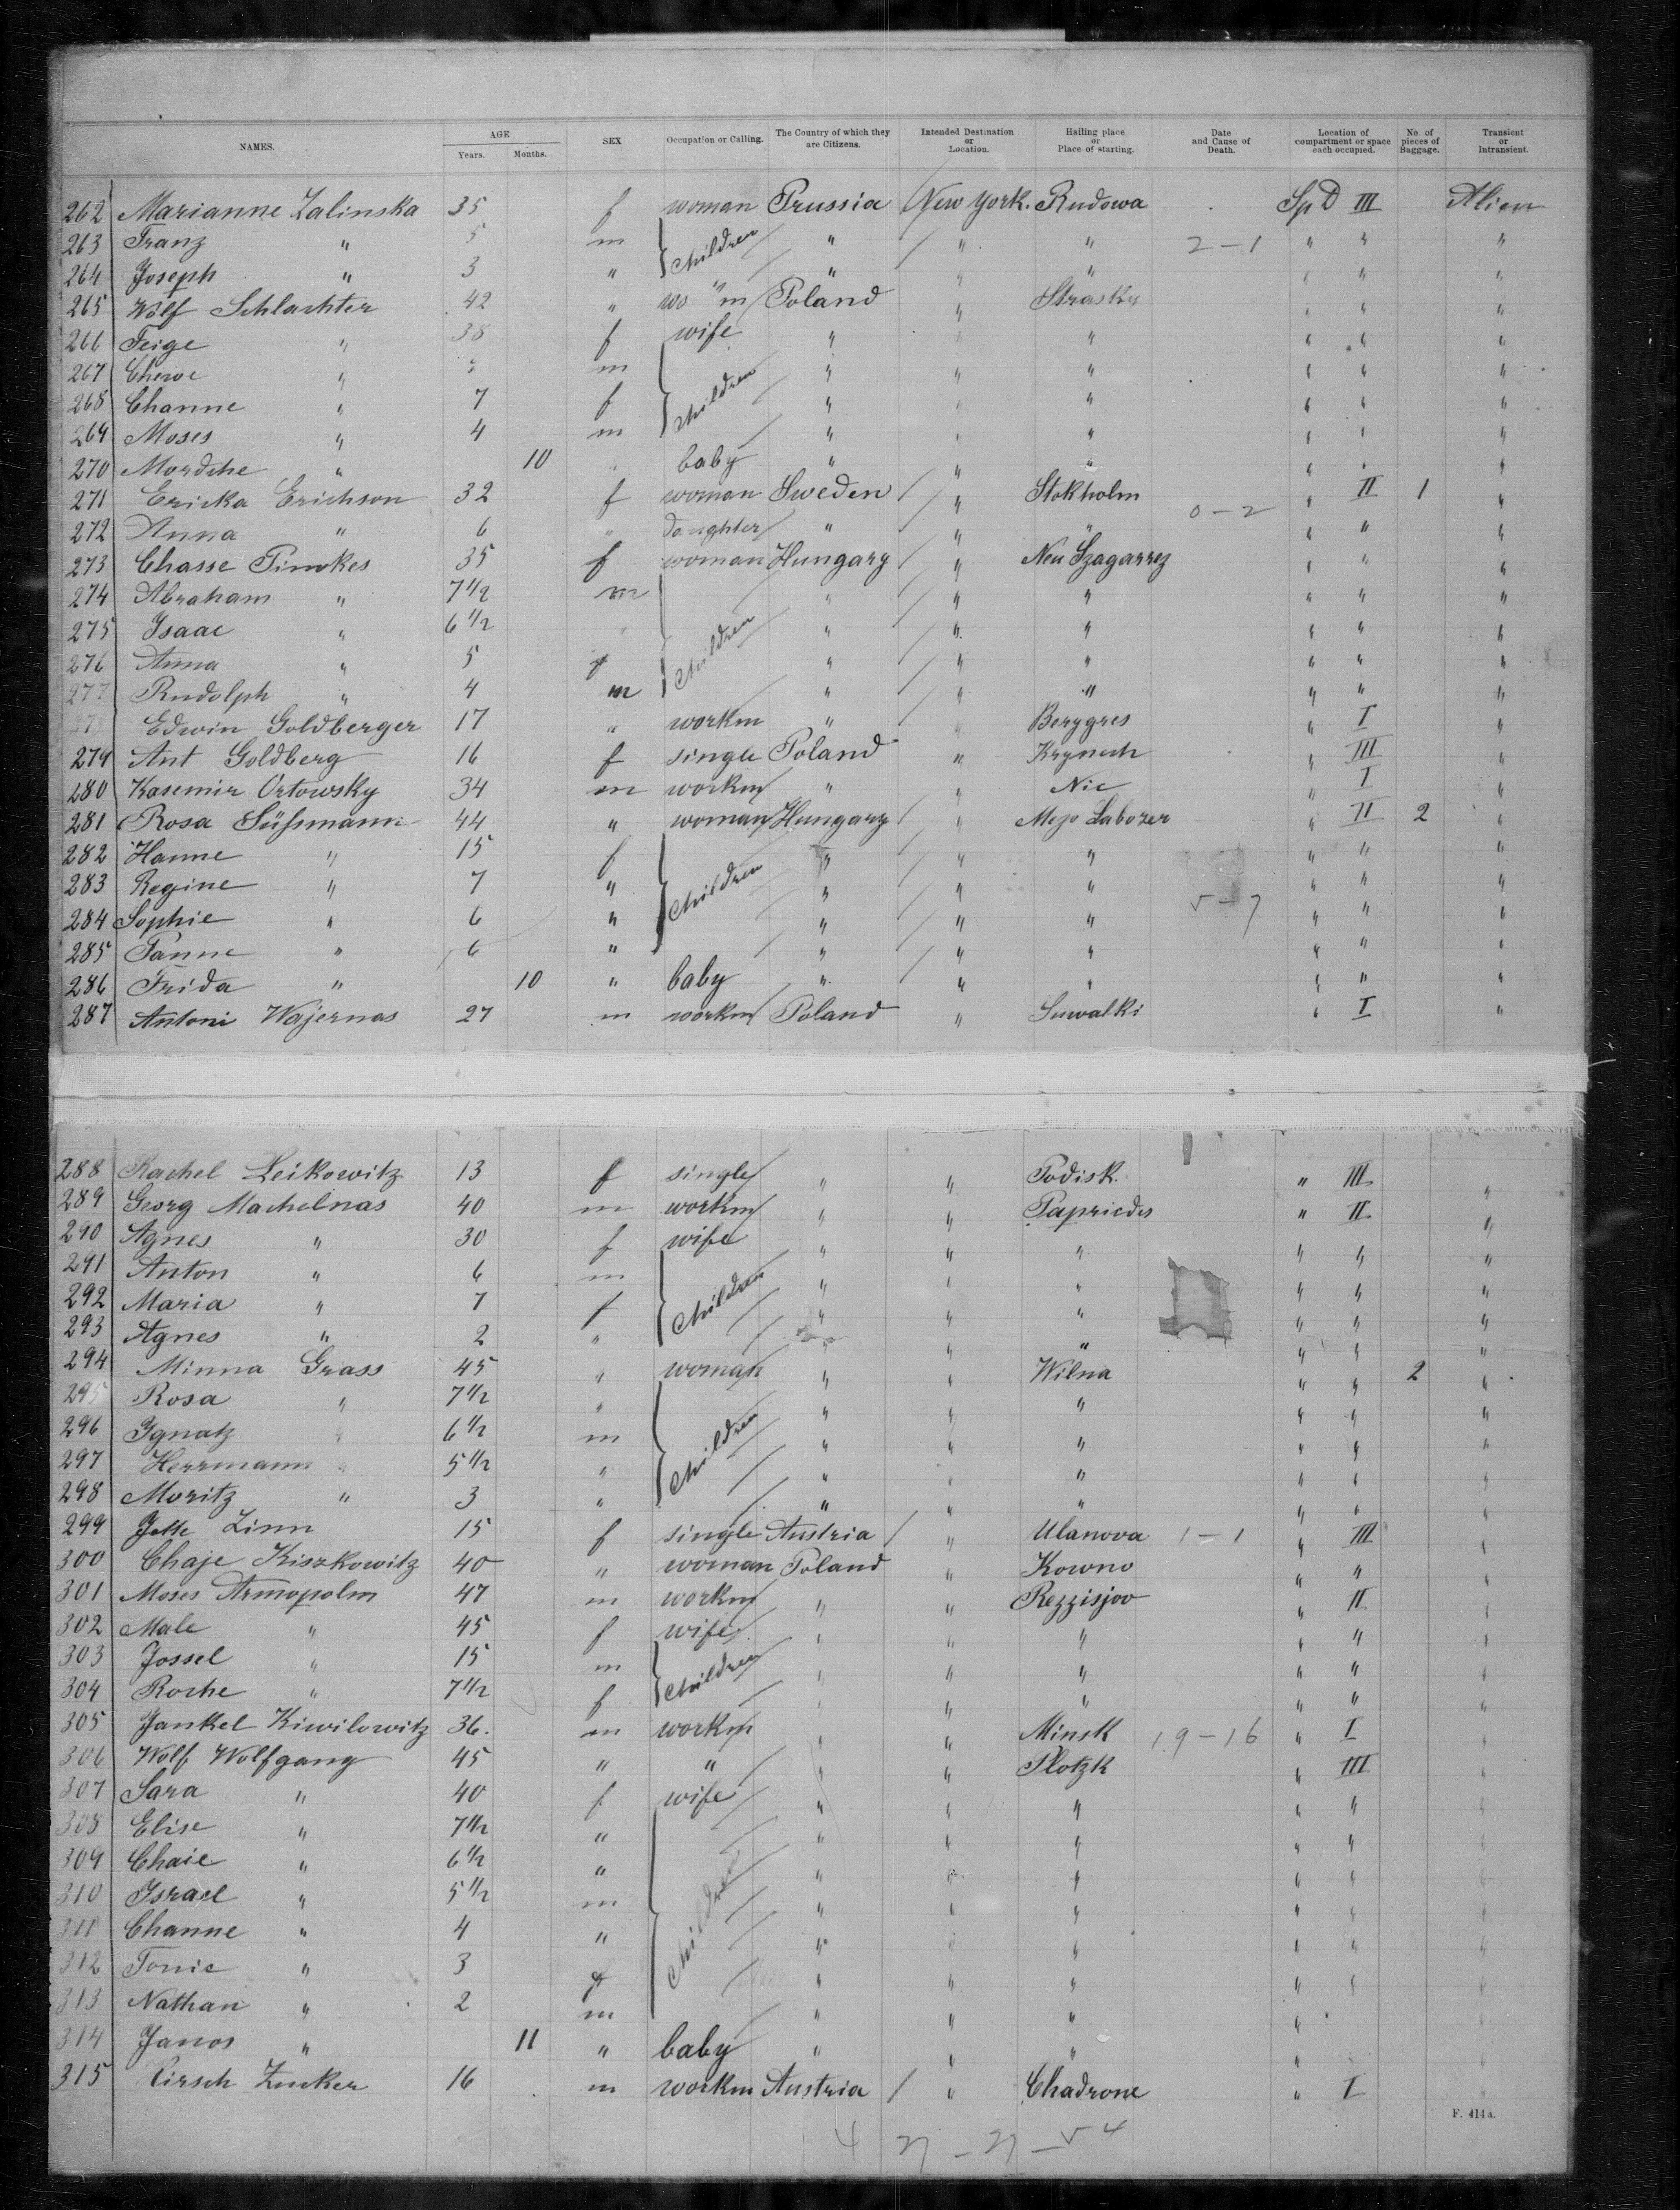 NAMES. AGE Years. Months. SEX Occupation or Calling. The Country of which they are Citizens. Intended Destination or Location. Hailing place or Place of starting. Date and Cause of Death. Location of compartment or space each occupied. No. of pieces of Baggage. Transient or Intransient.
262 Marianne Zalinska 35 f woman Prussia New York. Rudowa Sp D III Alien
263 Franz " 5 m Children " " " 2-1 " " "
264 Joseph " 3 " " " " " " "
265 Wolf Schlachter 42 " wo"m Poland " Strasky " " "
266 Feige " 38 f wife " " " " " "
267 Chewe " m Children " " " " " "
268 Channe " 7 f " " " " " "
269 Moses " 4 m " " " " " "
270 Mordche " 10 " baby " " " " " "
271 Ericka Erichson 32 f woman Sweden " Stokholm 0-2 " II 1 "
272 Anna " 6 " daughter " " " " " "
273 Chasse Pinokes 35 f woman Hungary " Neu Szagarrez " " "
274 Abraham " 7 1/2 m Children " " " " " "
275 Isaac " 6 1/2 " " " " " " "
276 Anna " 5 f " " " " " "
277 Rudolph " 4 m " " " " " "
278 Edwin Goldberger 17 " workm " " Berygres " I "
279 Ant Goldberg 16 f single Poland " Krynech " III "
280 Kasemir Ortowsky 34 m workm " " Nic " I "
281 Rosa Süssmann 44 " woman Hungary " Mezo Laborer " II 2 "
282 Hanne " 15 f Children " " " " " "
283 Regine " 7 " " " " " " "
284 Sophie " 6 " " " " 5-7 " " "
285 Fanne " 6 " " " " " " "
286 Frida " 10 " baby " " " " " "
287 Antoni Wajernas 27 m workm Poland " Suwalki " I "
288 Rachel Leikowitz 13 f single " " Podisk. " III "
289 Georg Machelnas 40 m workm " " Papriedes " II "
290 Agnes " 30 f wife " " " " " "
291 Anton " 6 m Children " " " " " "
292 Maria " 7 f " " " " " "
293 Agnes " 2 " " " " " " "
294 Minna Grass 45 " woman " " Wilna " " 2 "
295 Rosa " 7 1/2 " Children " " " " " "
296 Ignatz " 6 1/2 m " " " " " "
297 Herrmann " 5 1/2 " " " " " " "
298 Moritz " 3 " " " " " " "
299 Jette Zinn 15 f single Austria " Ulanova 1-1 " III "
300 Chaje Kiszkowitz 40 " woman Poland " Kowno " " "
301 Moses Armopolm 47 m workm " " Rezzisjoo " II "
302 Male " 45 f wife " " " " " "
303 Jossel " 15 m Children " " " " " "
304 Roche " 7 1/2 f " " " " " "
305 Jankel Kiwilowitz 36. m workm " " Minsk 19-16 " I "
306 Wolf Wolfgang 45 " " " " Plotzk " III "
307 Sara " 40 f wife " " " " " "
308 Elise " 7 1/2 " Children " " " " " "
309 Chaie " 6 1/2 " " " " " " "
310 Israel " 5 1/2 m " " " " " "
311 Channe " 4 " " " " " " "
312 Tonie " 3 f " " " " " "
313 Nathan " 2 m " " " " "
314 Janos " 11 " baby " " " " "
315 Hirsch Zucker 16 m workm Austria " Chadrone " I "
F. 414a.
4 27-27-54